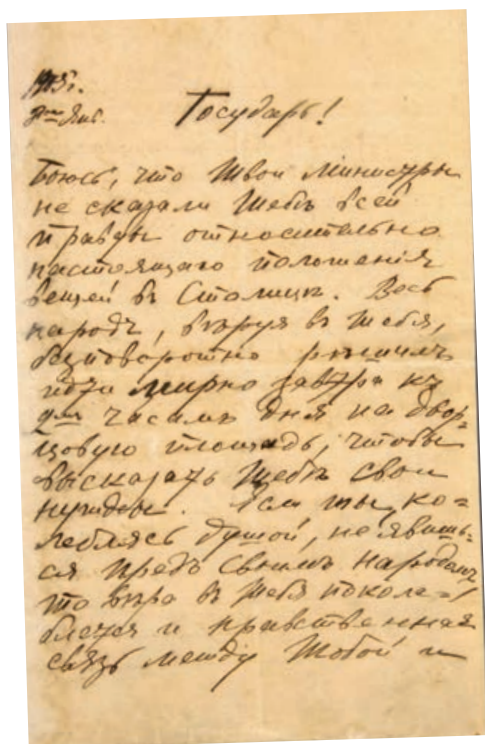 1905г.
8го Янв.
Государь!
Боюсь, что Твои министры
не сказали Тебѣ всей
правды относительно
настоящаго положенія
вещей въ Столицѣ. Весь
народъ, вѣруя въ Тебя,
безповоротно рѣшилъ
идти мирно завтра къ
2мъ часамъ дня на двор=
цовую площадь, чтобы
высказать Тебѣ свои
нужды. Если ты, ко=
леблясь душой, не явишь=
ся предъ своимъ народомъ,
то вѣра въ Тебя поколе=
блется и нравственная
связь между Тобой и